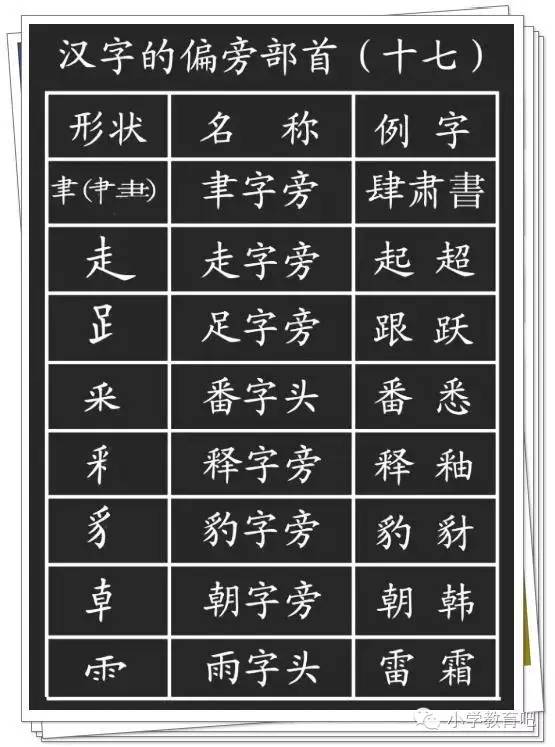 汉字的偏旁部首（十七）
形状 名称 例字
聿字旁 肆肃書
走 走字旁 起超
足字旁 跟跃
番字头 番悉
释字旁 释釉
豸 豹字旁 豹豺
朝字旁 朝韩
雨字头 雷霜
小学教育吧